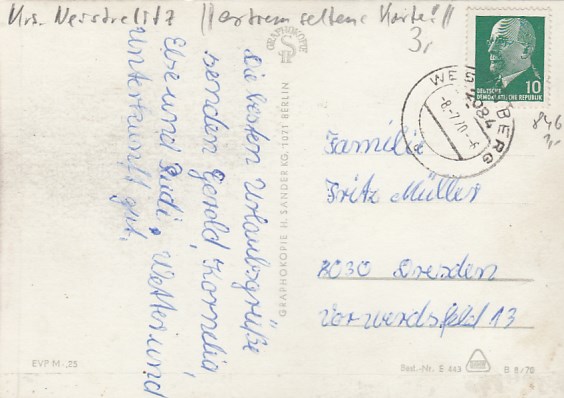 Krs. Neustrelitz //extrem seltene Karte!//
3,-
GRAPHOKOPIE
DEUTSCHE
DEMOKRATISCHE REPUBLIK 10
WESENBERG
2084
-8.-7.70.-
a
846
Die besten Urlaubsgrüße
senden Gerold, Kornelia,
Else und Rudi. Wetter und
Unterkunft gut.
GRAPHOKOPIE H. SANDER KG, 1071 BERLIN
Familie
Fritz Müller
8030 Dresden
EVP M -,25
Best.-Nr. E 443
B 8/70